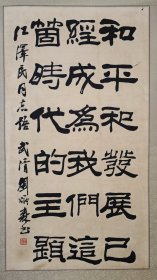 和平和發展已
經成為我們這
箇時代的主題
江澤民同志語 武清劉炳森書